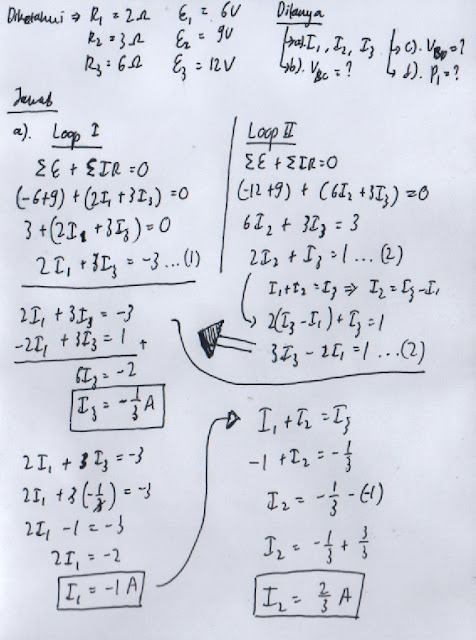 Diketahui => R₁ = 2Ω   ε₁ = 6V
R₂ = 3Ω   ε₂ = 9V
R₃ = 6Ω   ε₃ = 12V
Ditanya
a). I₁, I₂, I₃   c). V_BD = ?
b). V_BC = ?   d). P₁ = ?
Jawab
a). Loop I
Σε + ΣIR = 0
(-6+9) + (2I₁ + 3I₃) = 0
3 + (2I₁ + 3I₃) = 0
2I₁ + 3I₃ = -3 ... (1)
Loop II
Σε + ΣIR = 0
(-12+9) + (6I₂ + 3I₃) = 0
6I₂ + 3I₃ = 3
2I₂ + I₃ = 1 ... (2)
I₁ + I₂ = I₃ => I₂ = I₃ - I₁
2(I₃ - I₁) + I₃ = 1
3I₃ - 2I₁ = 1 ... (2)
2I₁ + 3I₃ = -3
-2I₁ + 3I₃ = 1 +
6I₃ = -2
I₃ = -1/3 A
2I₁ + 3I₃ = -3
2I₁ + 3(-1/3) = -3
2I₁ - 1 = -3
2I₁ = -2
I₁ = -1 A
I₁ + I₂ = I₃
-1 + I₂ = -1/3
I₂ = -1/3 - (-1)
I₂ = -1/3 + 3/3
I₂ = 2/3 A